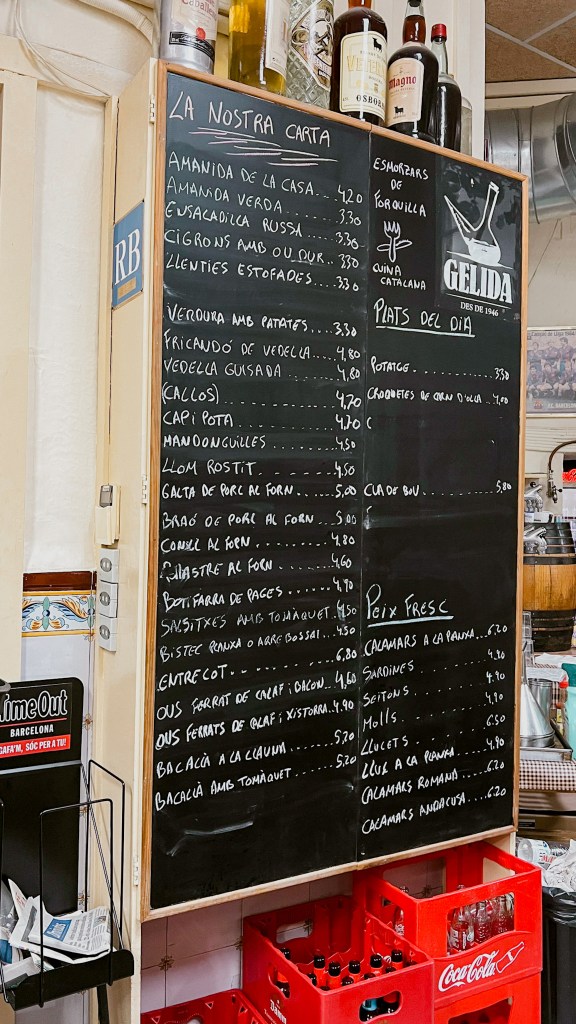 LA NOSTRA CARTA
AMANIDA DE LA CASA....4,20
AMANIDA VERDA........3.30
ENSALADILLA RUSSA.....3.30
CIGRONS AMB OU DUR..3.30
LLENTIES ESTOFADES...3.30
VERDURA AMB PATATES...3.30
FRICANDÓ DE VEDELLA...4,80
VEDELLA GUISADA.......4,80
(CALLOS)..............4,70
CAP I POTA............4,70
MANDONGUILLES.........4,50
LLOM ROSTIT...........4,50
GALTA DE PORC AL FORN......5,00
BRAÓ DE PORC AL FORN...5,00
CONILL AL FORN........4,80
POLLASTRE AL FORN......4,60
BOTIFARRA DE PAGES......4,70
SALSITXES AMB TOMÀQUET.4,50
BISTEC PLANXA O ARREBOSSAT...4,50
ENTRECOT..............6,80
OUS FERRAT DE CALAF I BACON..4,60
OUS FERRATS DE CALAF I XISTORRA.4,90
BACALLÀ A LA LLAUNA.....5,20
BACALLÀ AMB TOMÀQUET....5,20
ESMORZARS
DE
FORQUILLA
CUINA
CATALANA
GELIDA
DES DE 1946
PLATS DEL DIA
POTATGE................3,30
CROQUETES DE CARN D'OLLA..4,00
C
CUA DE BOU.............5,80
PEIX FRESC
CALAMARS A LA PLANXA..6.20
SARDINES..............4.90
SEITONS...............4.90
MOLLS.................4,90
LLUCETS...............6.50
LLUÇ A LA PLANXA......4.90
CALAMARS ROMANA.......6.20
CALAMARS ANDALUSA....6.20
RB
TimeOut
BARCELONA
AGAFA'M, SÓC PER A TU!
Magno
OSBORNE
Coca-Cola